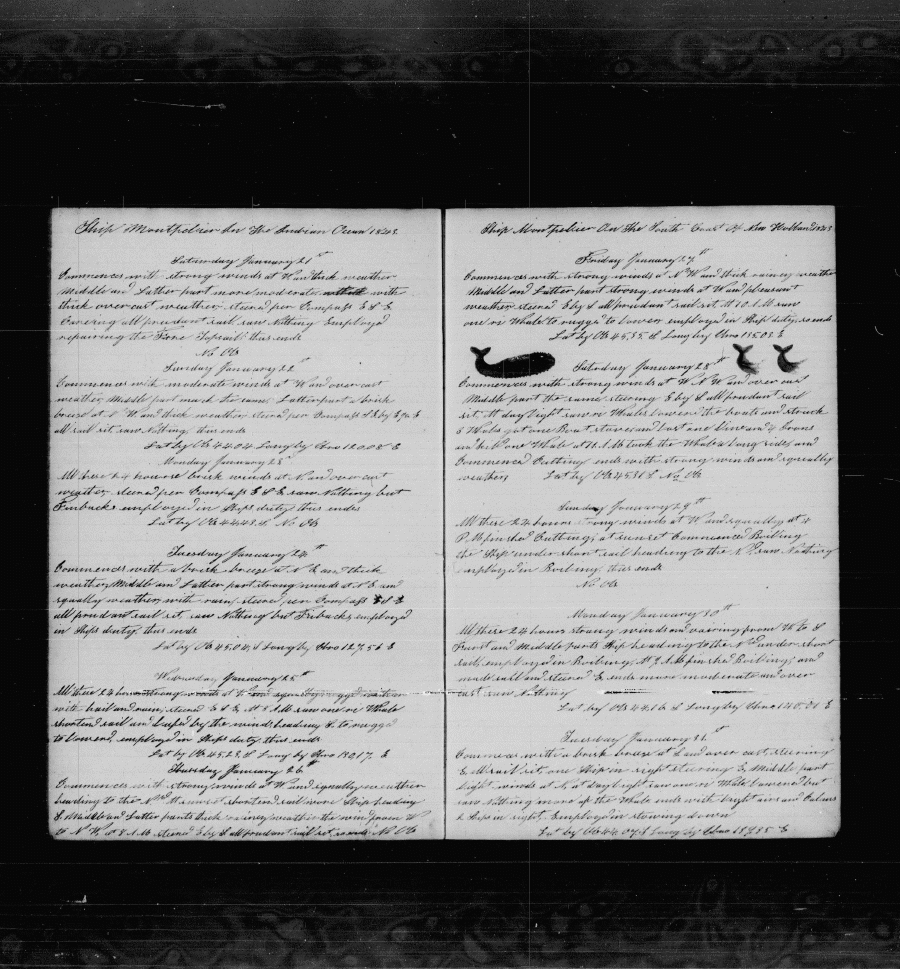 Ship Montpelier In the Indian Ocean 1843
Saturday January 21st
Commences with strong winds at W and thick weather
Middle and Latter part more moderate with
thick over cast weather, steered per Compass E S E
Carrying all prudant sail saw Nothing Employd
repairing the Fore Topsail thus ends
No Ob
Sunday January 22nd
Commences with moderate winds at W and over cast
weather Middle part much the same Latter part a brisk
breese at N W and thick weather steered per Compass
all sail sit saw Nothing thus ends
Lat by Ob 44.04 Long by Chro E
Monday January 23
All these 24 hours brisk winds at N and over cast
weather steered per Compass E S E saw Nothing but
Finbacks employed in Ships duty thus ends
Lat by Ob 44.43 S No Ob
Tuesday January 24th
Commences with a brisk breese at N E and thick
weather, Middle and Latter part strong winds at N E and
squally weather, with rain, steered per Compass E S E
all prudant sail sit, saw Nothing but Finbacks employed
in Ships duty, thus ends
Lat by Ob 45.04 S Long by Chro 127.51 E
Wednesday January 25th
All these 24 hours strong winds at and squally rugged weather
with hail and rain, steered E S E, At A M saw one ri Whale
shortend sail and luf'd by the wind heading to rugged
to lowerd, employed in Ships duty thus ends
Lat by Ob 45.23 S Long by Chro E
Thursday January 26th
Commences with strong winds at W and squally weather
heading to the N shortend sail more Ship heading
S Middle and Latter parts thick rainey weather the wind from W
to N W, at 8 A M steered E by S all prudant sail sit so ends No Ob
Ship Montpelier On the South Coast Of New Holland 1843
Friday January 27th
Commences with strong winds at N W and thick rainey weather
Middle and Latter part strong winds at W and pleasant
weather steered E by S all prudant sail sit, At 10 A M saw
one ri Whale to rugged to lower, employed in Ships duty so ends
Lat by Ob 45.35 S Long by Chro E
Saturday January 28th
Commences with strong winds at W N W and over cast
Middle part the same steering E by S all prudant sail
sit. At day light saw ri Whales lowered the boats and struck
3 Whals got one Boat stove and lost one line and 4 Irons
and Whale at 11 A M took the Whale a long sides and
Commenced Cutting ends with strong winds and squally
weather Lat by Ob 45.36 S No Ob
Sunday January 29th
All these 24 hours strong winds at W and squally, at 4
P M finshed Cutting, at sunset Commenced Boiling
the Ship under short sail heading to the N saw Nothing
employed in Boiling thus ends
No Ob
Monday January 30th
All these 24 hours strong winds and vairing from W to S
First and Middle parts Ship heading to the N under short
sail employed in Boiling; At A M finshed Boiling; and
made sail and steered E, ends more moderate and over
cast saw Nothing
Lat by Ob Long by Chro E
Tuesday January 31st
Commences with a brisk breese at S and over cast, steering
E, all sail sit, one Ship in sight steering E, Middle part
light winds at N, at day light saw one ri Whale lowered but
saw Nothing more of the Whale ends with light airs and Calms
Ship in sight. Employd in stowing down
Lat by Ob S Long by Chro E